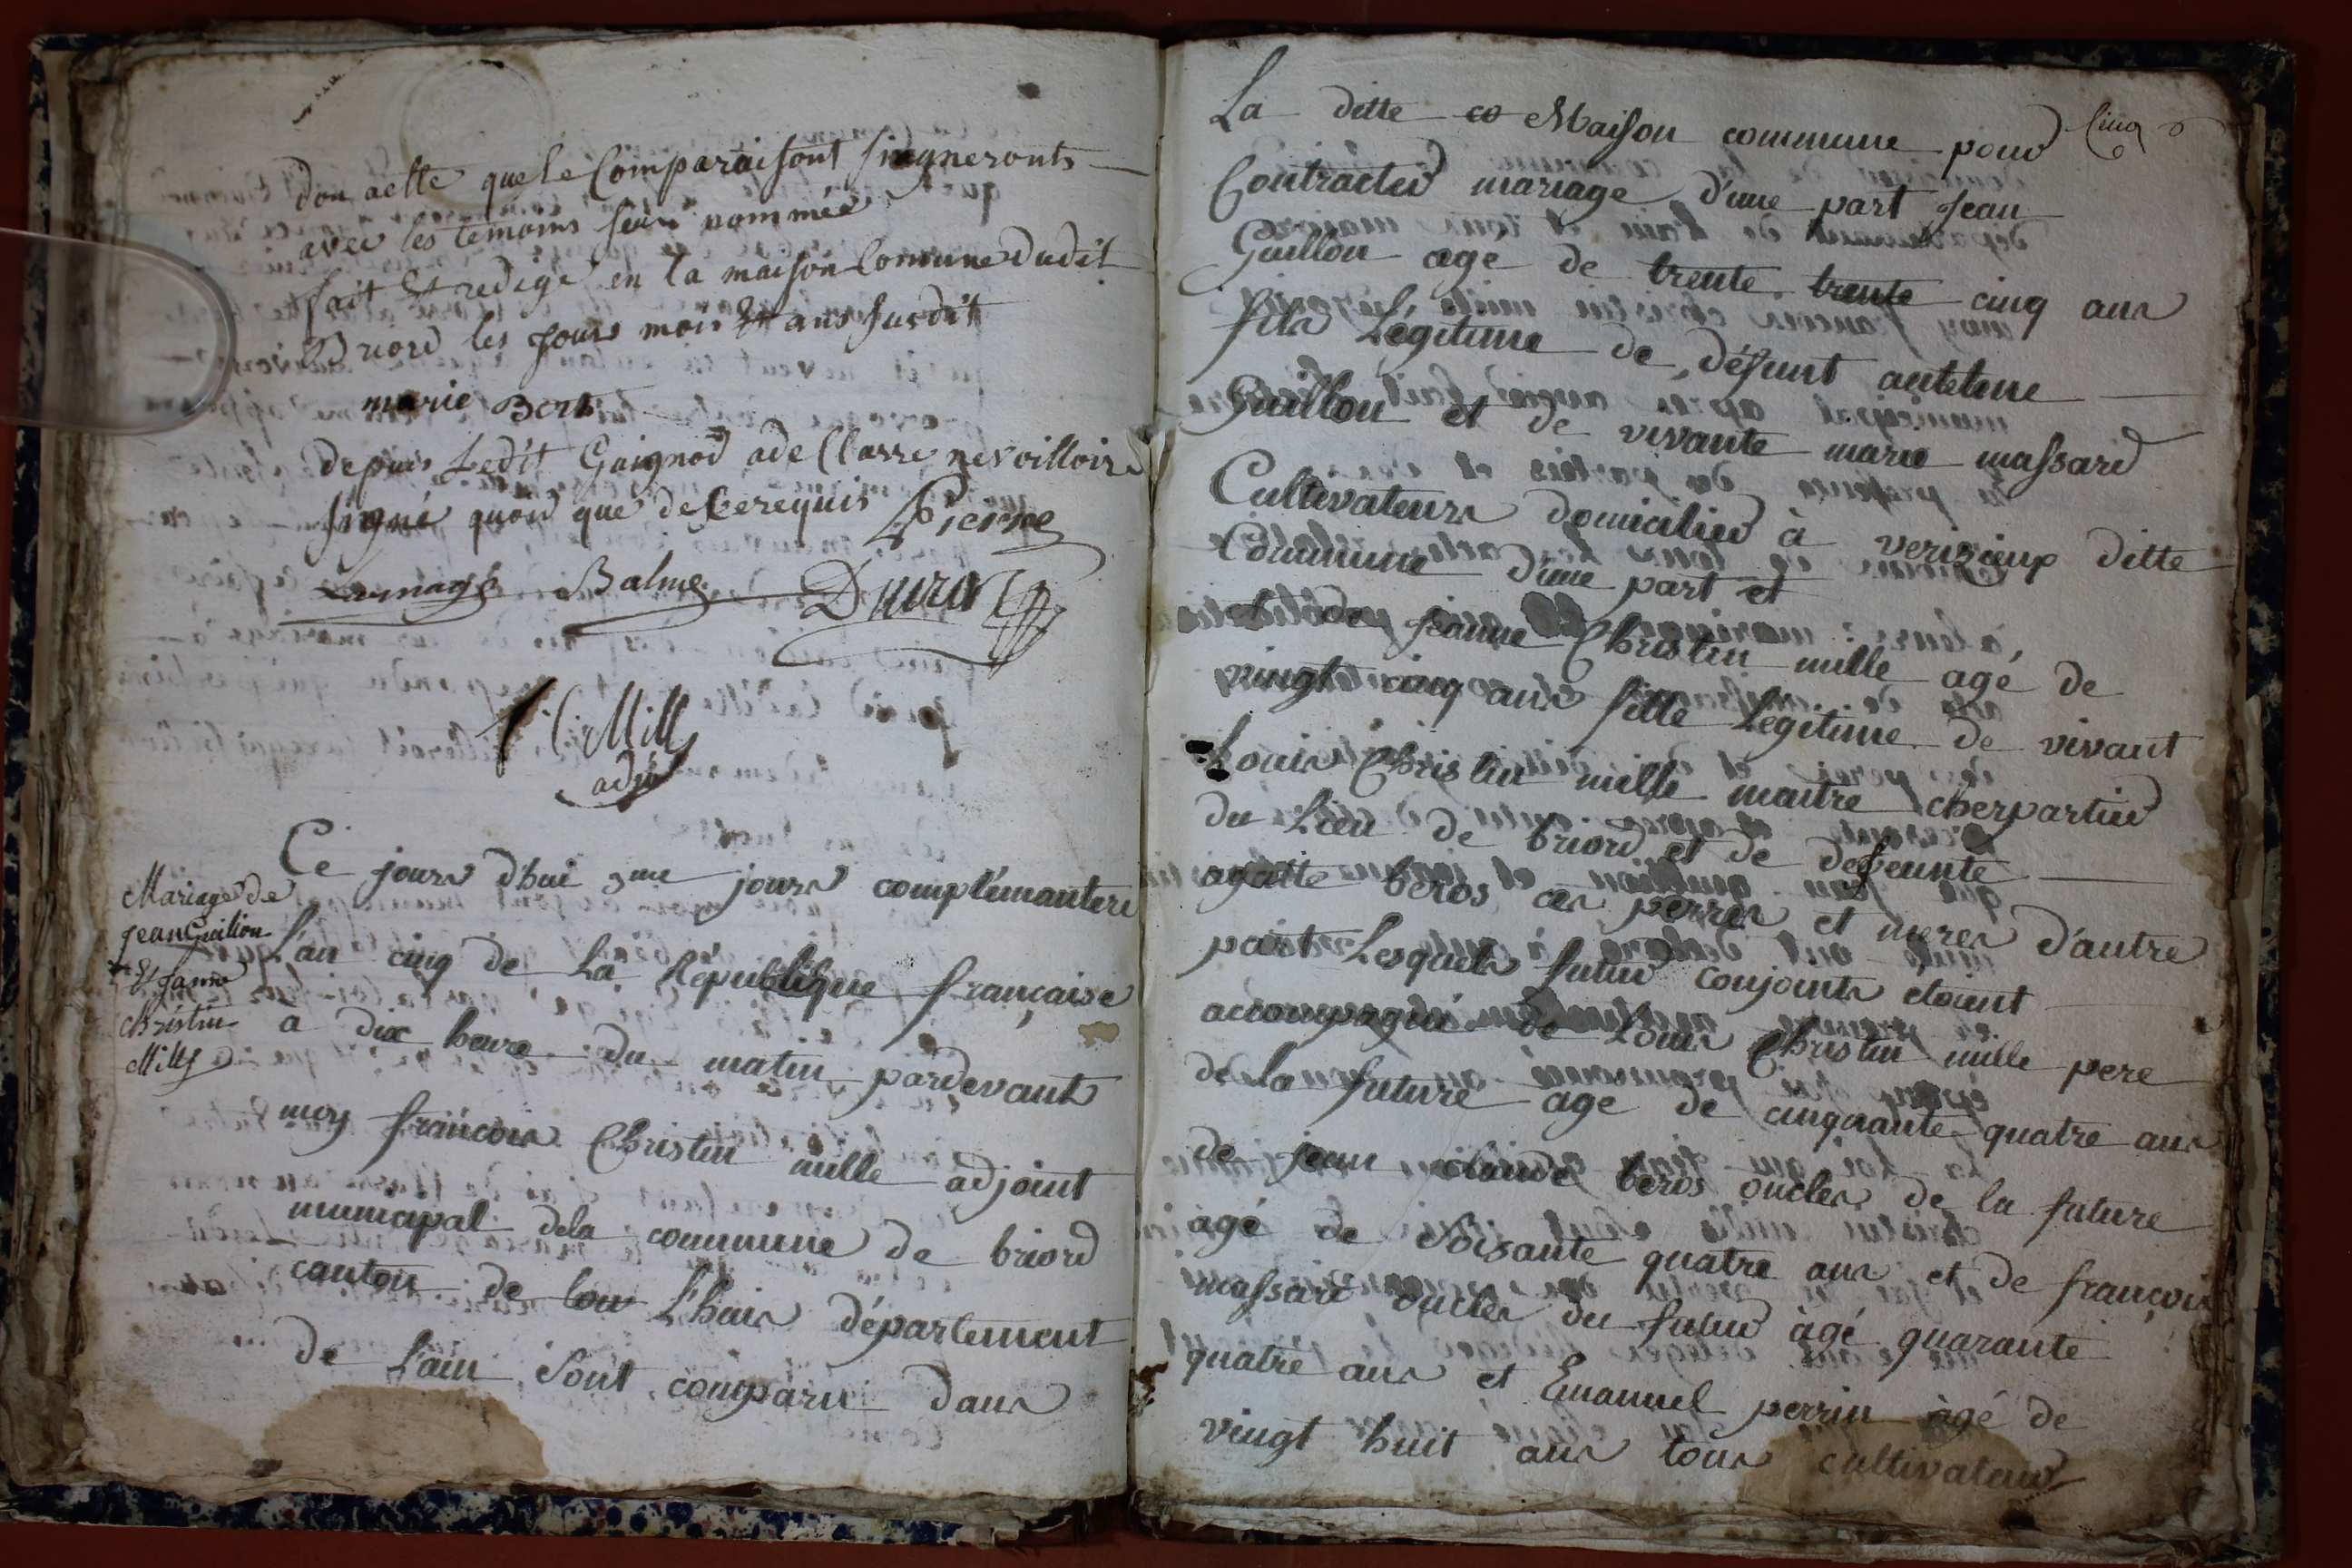 don actte que le Comparaisont singneronts
avec les temoins seus nommée
fait Et redigé en la maison Comune dudit
Briord les jours mois Et ans susdit
marie Bert
depuis Ledit Gaignod a de Clarre ne voilloire
signé quoid que de Ce requis Pierre
Balme Durand
C. Mille
adjoint
Mariage de
jean Guillon
Et Janne
Christin
Mille
Ce jours d'hui 3me jours complémantere
L'an cinq de La République française
a dix heure du matin pardevant
moy françois Christin mille adjoint
municipal dela commune de briord
canton de lou L'hais département
de Lain Sont comparu dans
Cinq
La ditte co Maison commune pour
Contracter mariage d'une part Jean
Guillon age de trente trente cinq ans
fils Légitime de défunt anteleme
Guillon et de vivante marie massard
Cultivateurs domicilier à verizieux ditte
Commune d'une part et
et de jeanne Christin mille agé de
vingt cinq ans fille Légitime de vivant
Louis Christin mille maitre cherpartier
du Lieu de briord et de defeunte
agatte beros ces perres et meres d'autre
part Lesquels futur conjoints étoient
accompagné de Louis Christin mille pere
de la future age de cinquante quatre ans
de jean claude beros oncles de la future
agé de Soisante quatre ans et de françois
massard oncles du futur àgé quarante
quatre ans et Emanuel perrin àgé de
vingt huit ans tous cultivateur